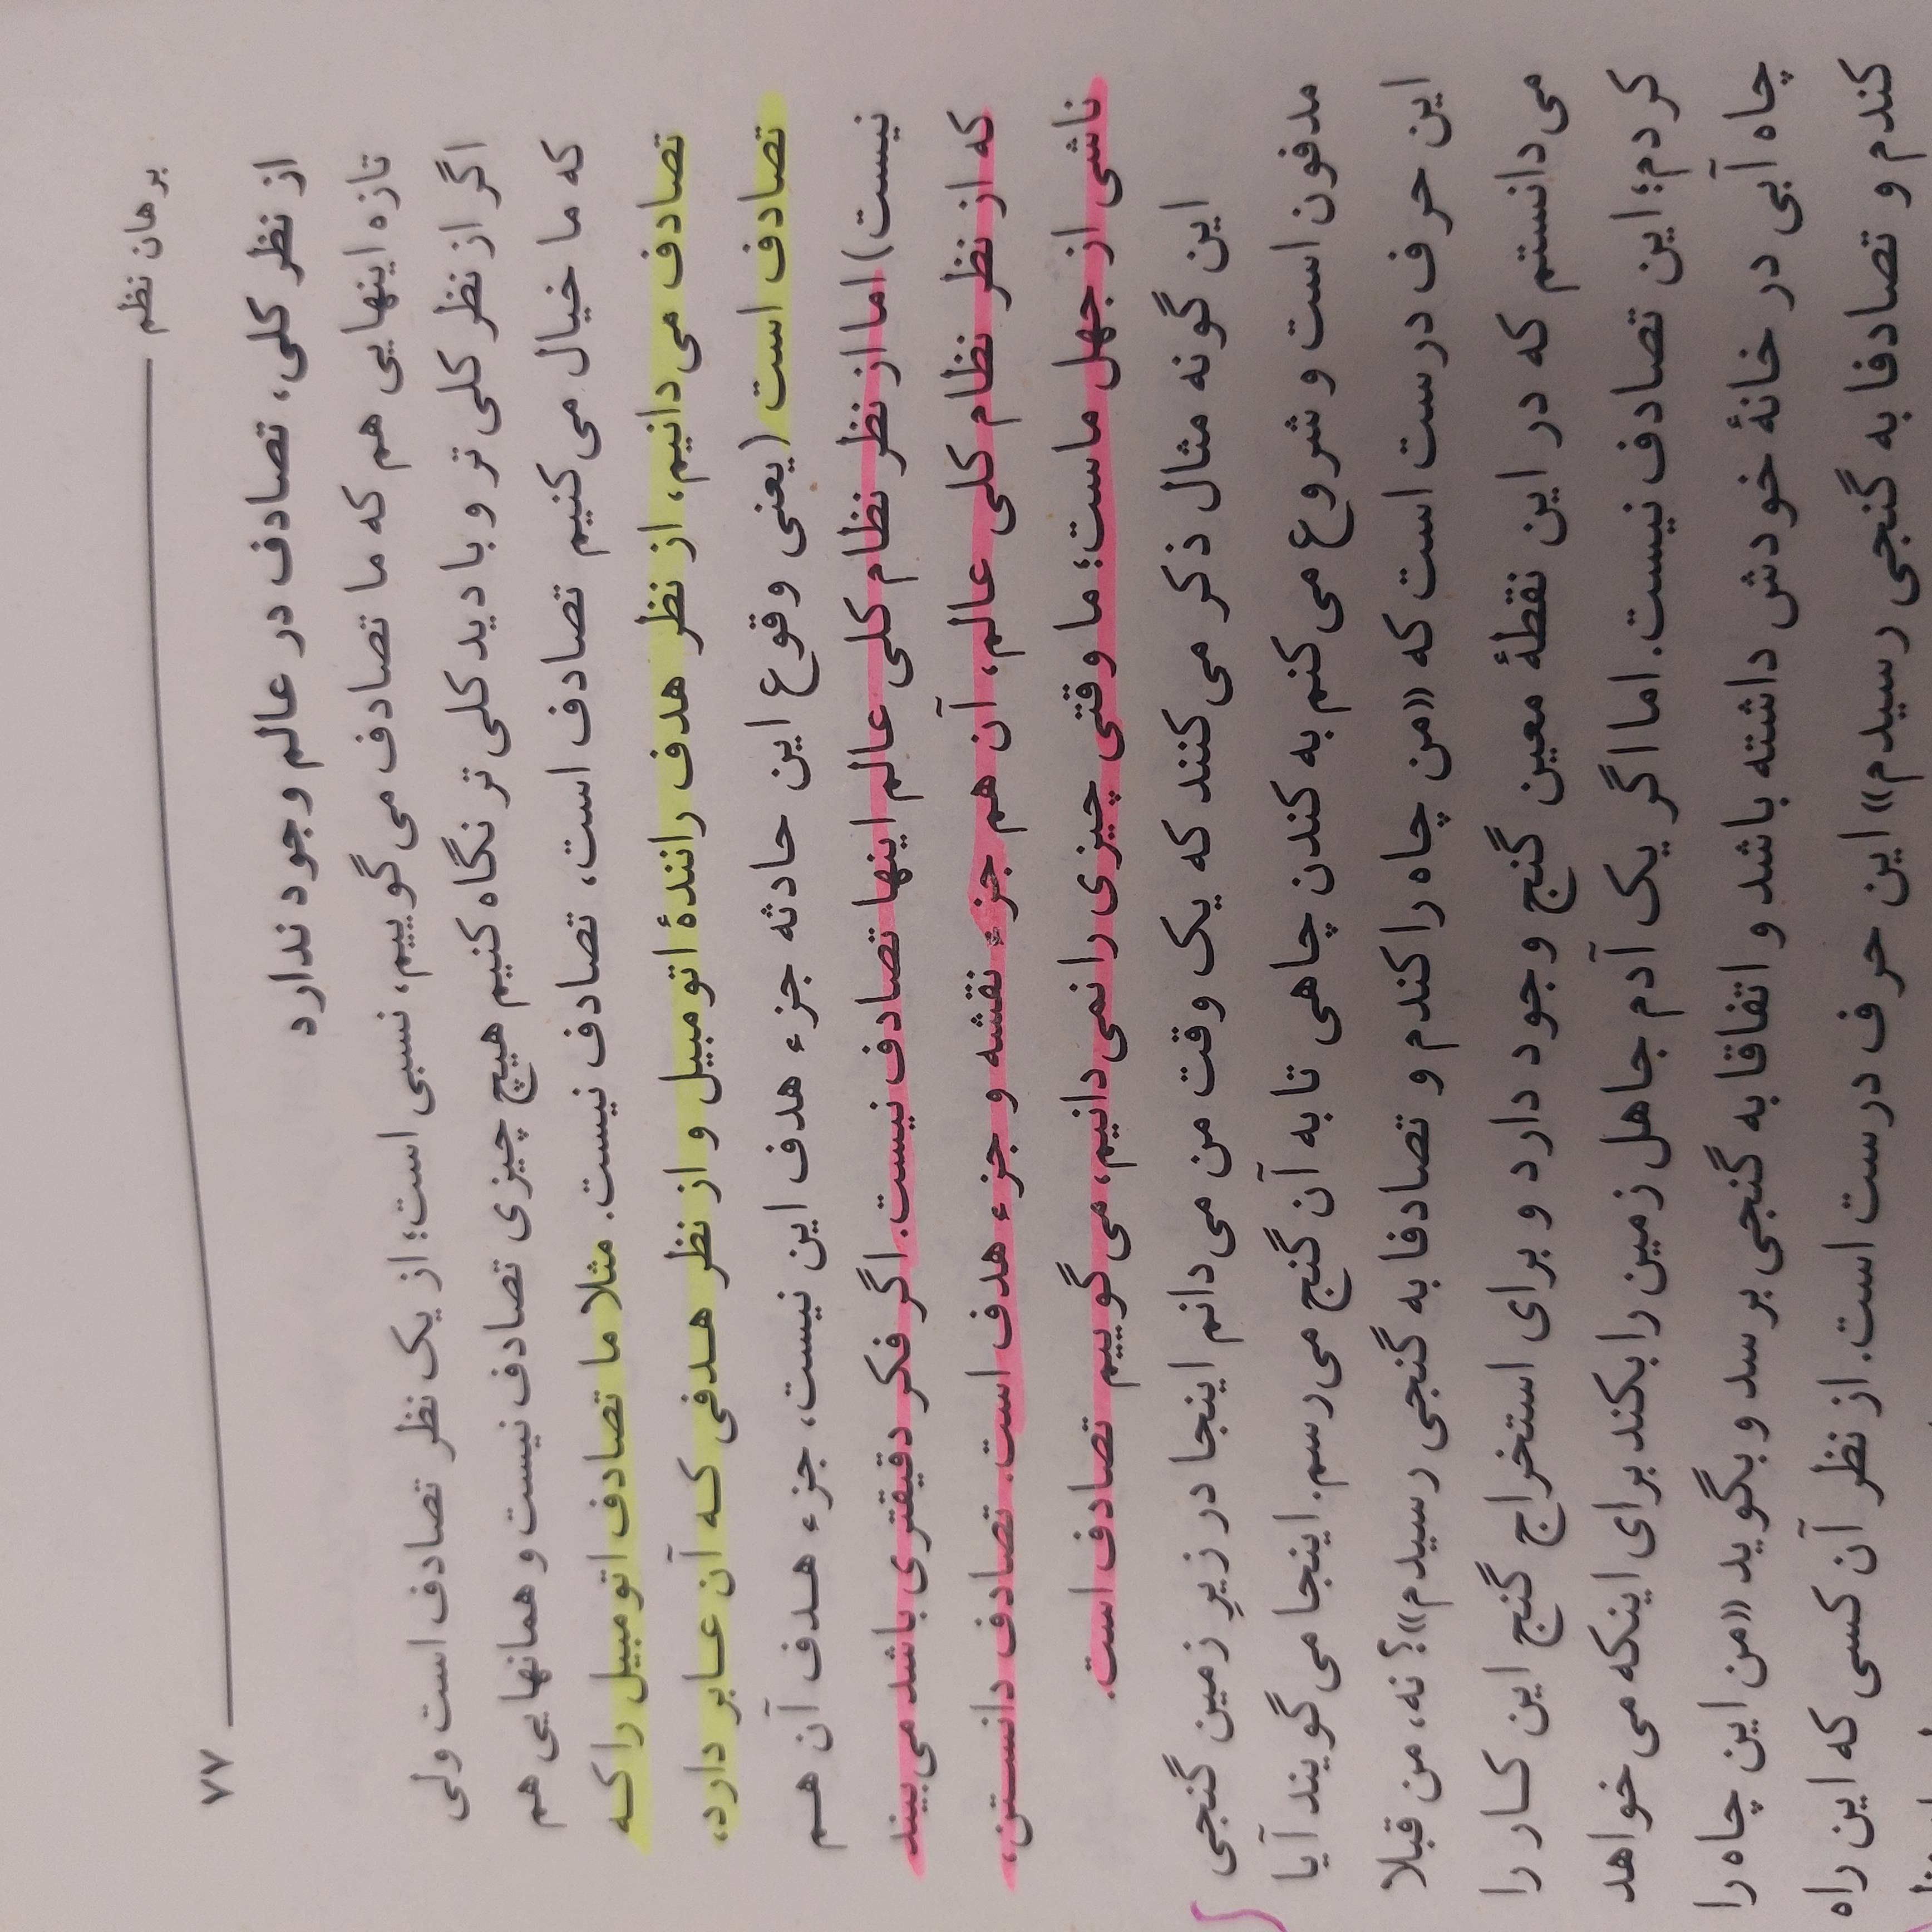 برهان نظم ۷۷
از نظر کلی، تصادف در عالم وجود ندارد
تازه اینهایی هم که ما تصادف می‌گوییم، نسبی است؛ از یک نظر تصادف است ولی
اگر از نظر کلی تر و با دید کلی تر نگاه کنیم هیچ چیزی تصادف نیست و همانهایی هم
که ما خیال می‌کنیم تصادف است، تصادف نیست. مثلا ما تصادف اتومبیل را که
تصادف می‌دانیم، از نظر هدف رانندهٔ اتومبیل و از نظر هدفی که آن عابر دارد،
تصادف است (یعنی وقوع این حادثه جزء هدف این نیست، جزء هدف آن هم
نیست) اما از نظر نظام کلی عالم اینها تصادف نیست. اگر فکر دقیقتری باشد می‌بیند
که از نظر نظام کلی عالم، آن هم جزء نقشه و جزء هدف است. تصادف دانستن،
ناشی از جهل ماست؛ ما وقتی چیزی را نمی‌دانیم، می‌گوییم تصادف است.
این گونه مثال ذکر می‌کنند که یک وقت من می‌دانم اینجا در زیرِ زمین گنجی
مدفون است و شروع می‌کنم به کندن چاهی تا به آن گنج می‌رسم. اینجا می‌گویند آیا
این حرف درست است که «من چاه را کندم و تصادفا به گنجی رسیدم»؟ نه، من قبلا
می‌دانستم که در این نقطهٔ معین گنج وجود دارد و برای استخراج گنج این کار را
کردم؛ این تصادف نیست. اما اگر یک آدم جاهل زمین را بکند برای اینکه می‌خواهد
چاه آبی در خانهٔ خودش داشته باشد و اتفاقا به گنجی برسد و بگوید «من این چاه را
کندم و تصادفا به گنجی رسیدم» این حرف درست است. از نظر آن کسی که این راه